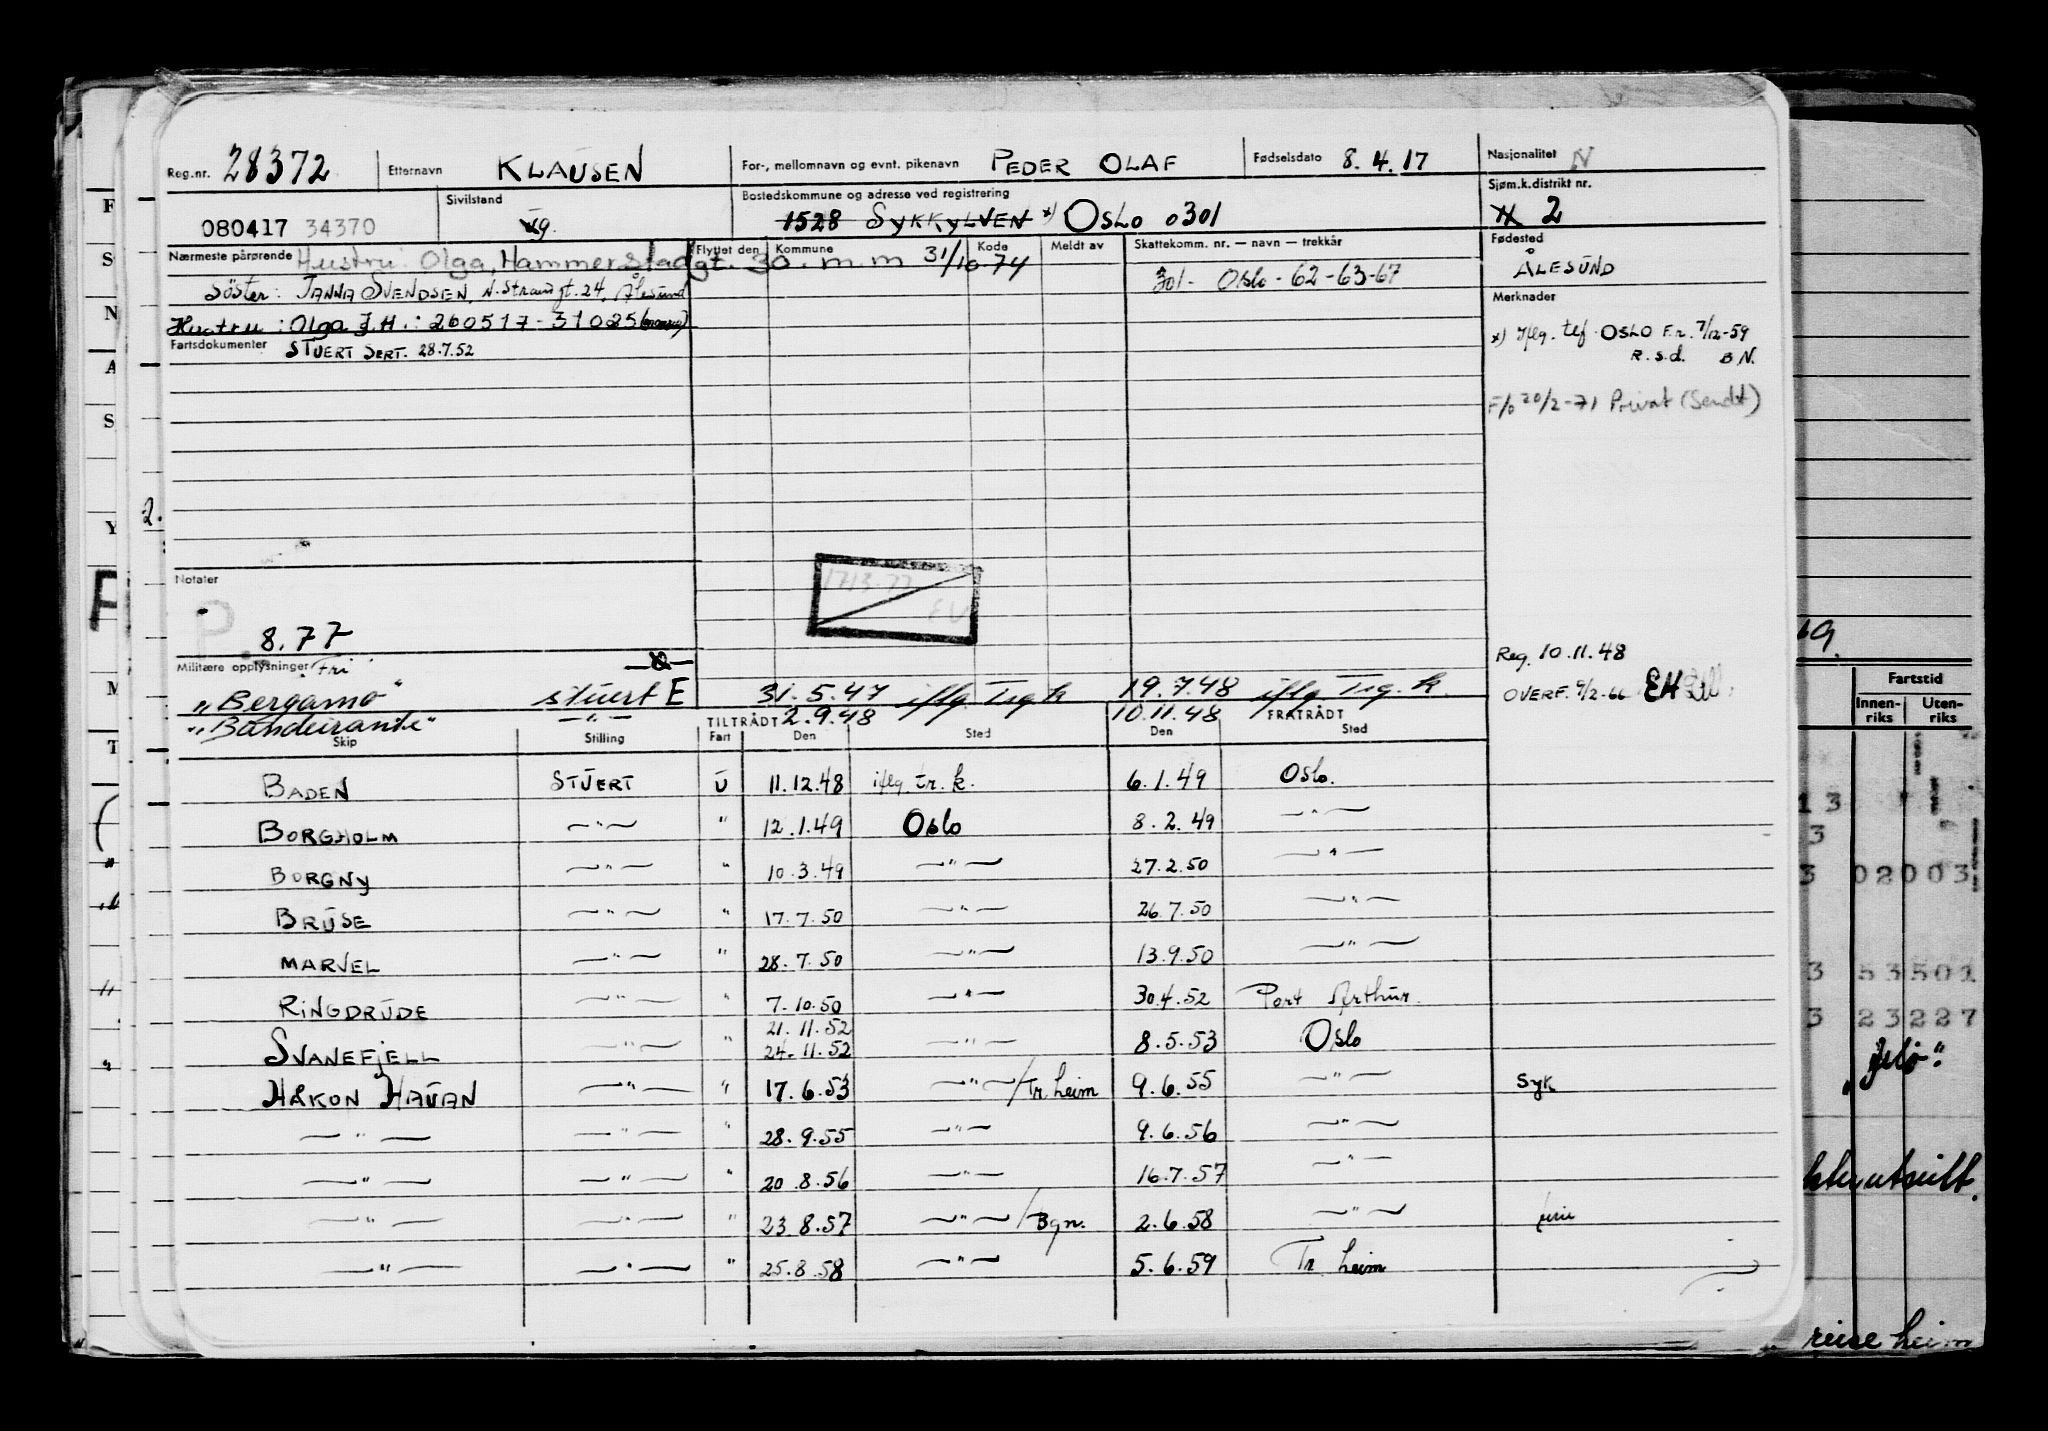 Reg.nr. 28372 Etternavn KLAUSEN For-, mellomnavn og evnt. pikenavn PEDER OLAF Fødselsdato 8.4.17 Nasjonalitet N
080417 34370 Sivilstand Bostedskommune og adresse ved registrering 1528 SYKKYLVEN x) OSLO 0301 Sjøm.k.distrikt nr. 2
Nærmeste pårørende Hustru: Olga, Hammerstadgt. 30. m.m 31/10-74
Flyttet den Kommune Kode Meldt av Skattekomm. nr. — navn — trekkår Fødested
ÅLESUND
Söster: JANNA SVENDSEN, N. Strandgt. 24, Ålesund 301- Oslo - 62-63-67
Merknader
Hustru: Olga J.H.: 260517-31025
Fartsdokumenter STUERT SERT. 28.7.52
x) Iflg. tlf. OSLO F.r. 7/12-59
R.s.d. B.N.
F/o 20/2-71 Privat (Sendt)
Notater
8.77
Militære opplysninger Fri
Reg. 10.11.48
OVERF. 9/2-66 EH
"Bergamo" stuert E 31.5.47 iflg Trg k 19.7.48 iflg. Trg. k.
"Bandeirante" —"— TILTRÅDT 2.9.48 10.11.48 FRATRÅDT
Skip Stilling Fart Den Sted Den Sted
BADEN STUERT U 11.12.48 iflg. tr. k. 6.1.49 Oslo.
BORGHOLM —"— " 12.1.49 Oslo 8.2.49 —"—
BORGNY —"— " 10.3.49 —"— 27.2.50 —"—
BRUSE —"— " 17.7.50 —"— 26.7.50 —"—
MARVEL —"— " 28.7.50 —"— 13.9.50 —"—
RINGDRUDE —"— " 7.10.50 —"— 30.4.52 Port Arthur.
21.11.52
SVANEFJELL —"— " 24.11.52 —"— 8.5.53 Oslo
HÅKON HAUAN —"— " 17.6.53 —"—/Tr.heim 9.6.55 —"— Syk
—"— —"— " 28.9.55 —"— 9.6.56 —"—
—"— —"— " 20.8.56 —"— 16.7.57 —"—
—"— —"— " 23.8.57 —"—/Bgn. 2.6.58 —"— ferie
—"— —"— " 25.8.58 —"— 5.6.59 Tr.heim
Fartstid
Innen-riks Uten-riks
13
3
3 02003
3 53501
3 23227
reise heim